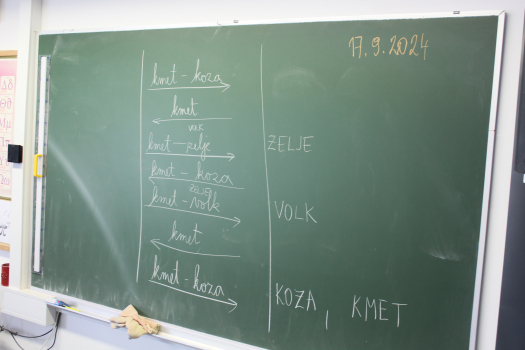 17.9.2024
kmet - koza
kmet
VOLK
kmet - zelje
ZELJE
kmet - koza
ZELJE
kmet - volk
VOLK
kmet
kmet - koza
KOZA, KMET